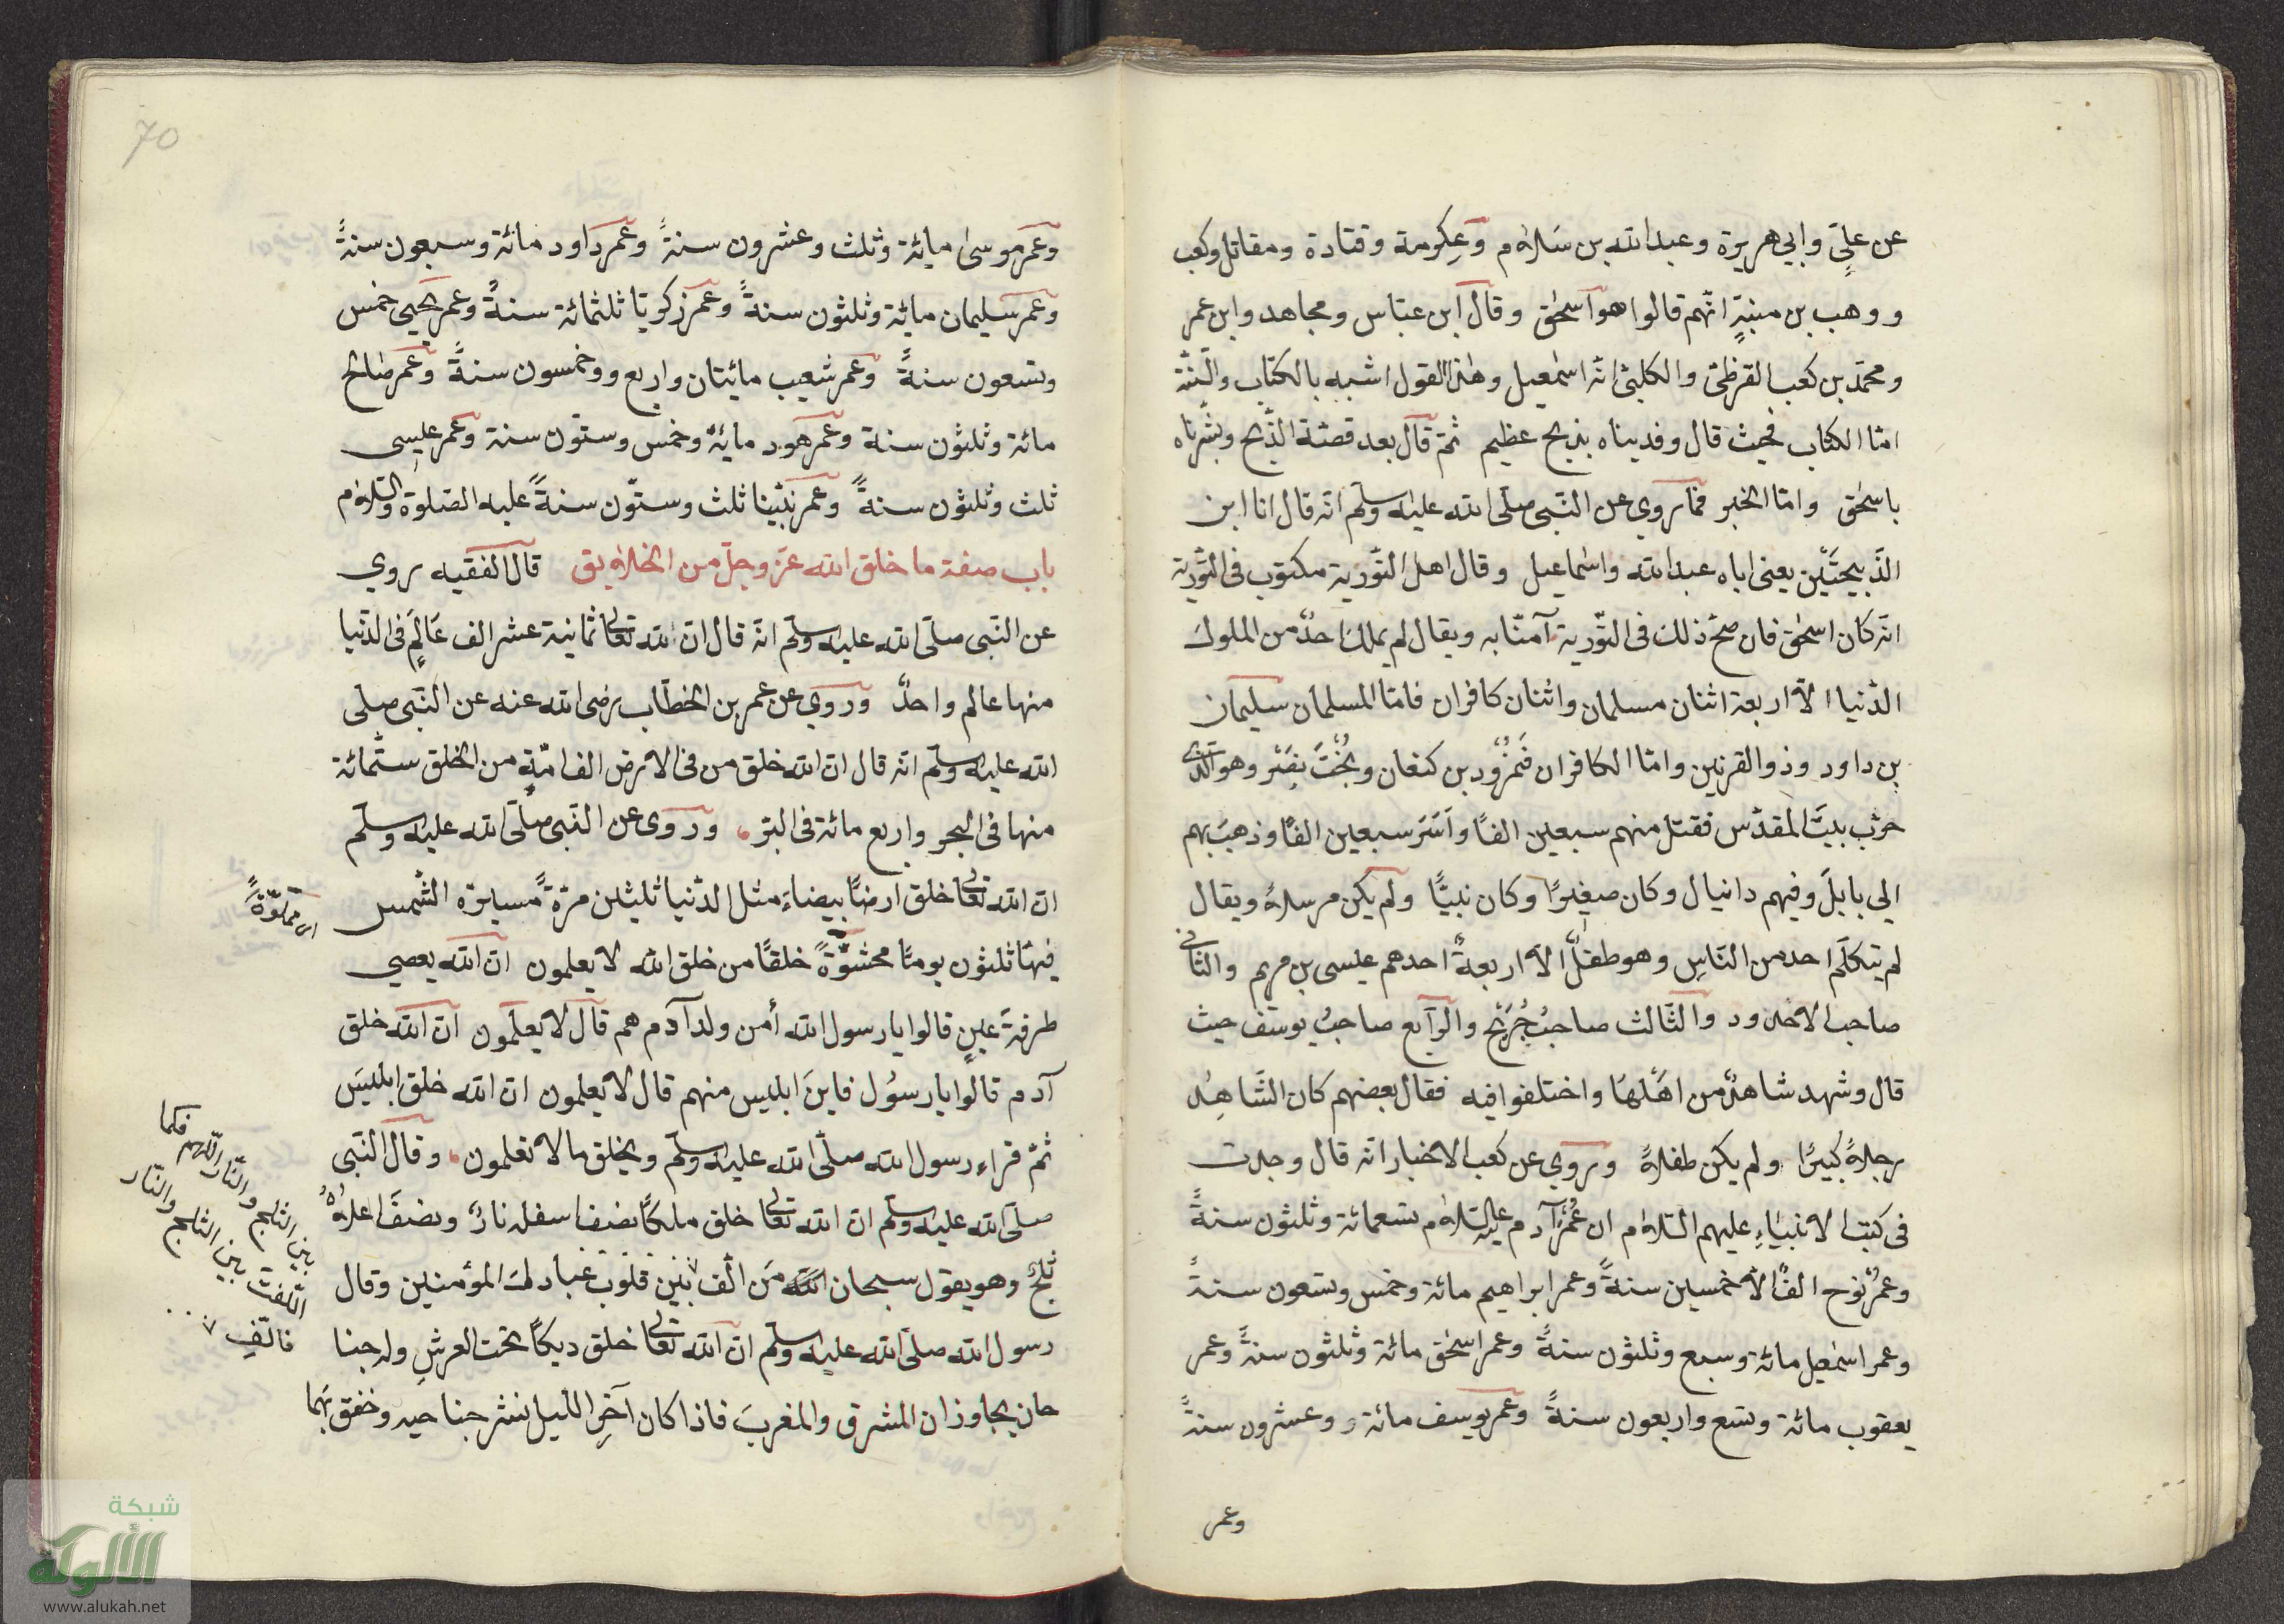 عن عليٍّ وابي هريرة وعبد الله بن سَلاٰم وعِكرمة وقتادة ومقاتل وكعب
ووهب بن منبّهٍ انّهم قالوا هو اسحٰق وقال ابن عبّاس ومجاهد وابن عمر
ومحمّد بن كعب القرظيّ والكلبيّ انّه اسمٰعيل وهٰذا القول اشبه بالكتاب والسّنّة
امّا الكتاب فحيث قال وفديناه بذبح عظيم ثمّ قال بعد قصّة الذّبح وبشّرناه
باسحٰق وامّا الخبر فما روي عن النّبي صلّى الله عليه وسلّم انّه قال انا ابن
الذّبيحَيْن يعني اباه عبد الله واسماعيل وقال اهل التّورية مكتوب في التّورية
انّه كان اسحٰق فان صحّ ذلك في التّورية آمنّا به ويقال لم يملك احدٌ من الملوك
الدّنيا الاّ اربعة اثنان مسلمان واثنان كافران فامّا المسلمان سليمان
بن داود وذو القرنين وامّا الكافران فنمْرُود بن كنعان وبُخْتَ نصّر وهو الّذي
خرّب بيتَ المقدّس فقتل منهم سبعين الفًا وأسَرَ سبعين الفًا وذهبَ بهم
الي بابلَ وفيهم دانيال وكان صغيرًا وكان نبيًّا ولم يكن مرسلاً ويقال
لم يتكلّم احد من النّاسِ وهو طفلٌ الاّ اربعةٌ احدهم عيسى بن مريم والثّاني
صاحب الاخدود والثّالث صاحبُ جُرَيْج والرّابع صاحبُ يوسف حيث
قال وشهد شاهدٌ من اهْلهَا واختلفوا فيه فقال بعضهم كان الشّاهِد
رجلاً كبيرًا ولم يكن طفلاً وروي عن كعب الاخبار انّه قال وجدت
في كتب الانبيَاءِ عليهم السّلاٰم ان عُمُرَ آدم عليه السّلاٰم تسعمائة وثلثون سنةً
وعمُرُ نوح الفًا الاّ خمسين سنةً وعمر ابراهيم مائة وخمس وتسعون سنةً
وعمر اسمٰعيل مائة وسبع وثلثون سنةً وعمر اسحٰق مائة وثلثون سنةً وعمر
يعقوب مائة وتسع واربعون سنةً وعمر يوسف مائة وعشرون سنةً
وعمر
70
وعمر موسىٰ مائة وثلث وعشرون سنةً وعمر داود مائة وسبعون سنةً
وعمر سليمان مائة وثلثون سنةً وعمر زكريّا ثلثمائة سنةً وعمر يحيي خمس
وتسعون سنةً وعمر شعيب مائيتان واربع ووخمسون سنةً وعمر صٰالح
مائة وثلثون سنة وعمر هود مائة وخمس وستون سنة وعمر عيسى
ثلث وثلثون سنةً وعمر نبيّنا ثلث وستّون سنةً عليه الصّلوة والسّلاٰم
باب صفة ما خلق الله عزّ وجلّ من الخلاٰيق قال الفقيه روي
عن النّبي صلّى الله عليه وسلّم انّه قال انّ لله تعالى ثمانية عشر الف عَالَمٍ في الدّنيا
منها عالم واحدٌ وروي عن عمر بن الخطّاب رضي الله عنه عن النّبي صلّى
الله عليه وسلّم انّه قال ان الله خلق من في الارض الف امّةٍ من الخلق ستّمائة
منها في البحر واربع مائة في البرّ وروى عن النّبي صلّى الله عليه وسلّم
ان الله تعالى خلق ارضًا بيضاءَ مثل الدّنيا ثليثلن مرّةً مسيرَة الشّمس
فيهَا ثلثون يومًا محشوّةً خلقًا من خلق الله لا يعلمون انّ الله يعصي
طرفةَ عينٍ قالوا يا رسول الله أمن ولد آدم هم قال لا يعلمون انّ الله خلق
آدم قالوا يا رسُول فاينَ ابليس منهم قال لا يعلمون انّ الله خلق ابليسَ
ثمّ قراء رسول الله صلّى الله عليه وسلّم ويخلق ما لا تعلمون وقال النّبي
صلّى الله عليه وسلّم ان الله تعالى خلق ملكًا نصف اسفله نارٌ ونصفَ اعلاٰهُ
ثلجٌ وهو يقول سبحان الله مَن الّف بين قلوب عبادك المؤمنين وقال
رسول الله صلّى الله عليه وسلّم انّ الله تعالى خلق ديكًا تحت العرشِ وله جنا
حان يجاوزان المشرق والمغربَ فاذا كان آخرِ اللّيل نشر جناحيه وخفق بهما
اى مملوّةً
اللّهم فكما
الّفت بين الثلج والنّار
بين الثلج والنّار
فالّفِ
شبكة
الألوكة
www.alukah.net